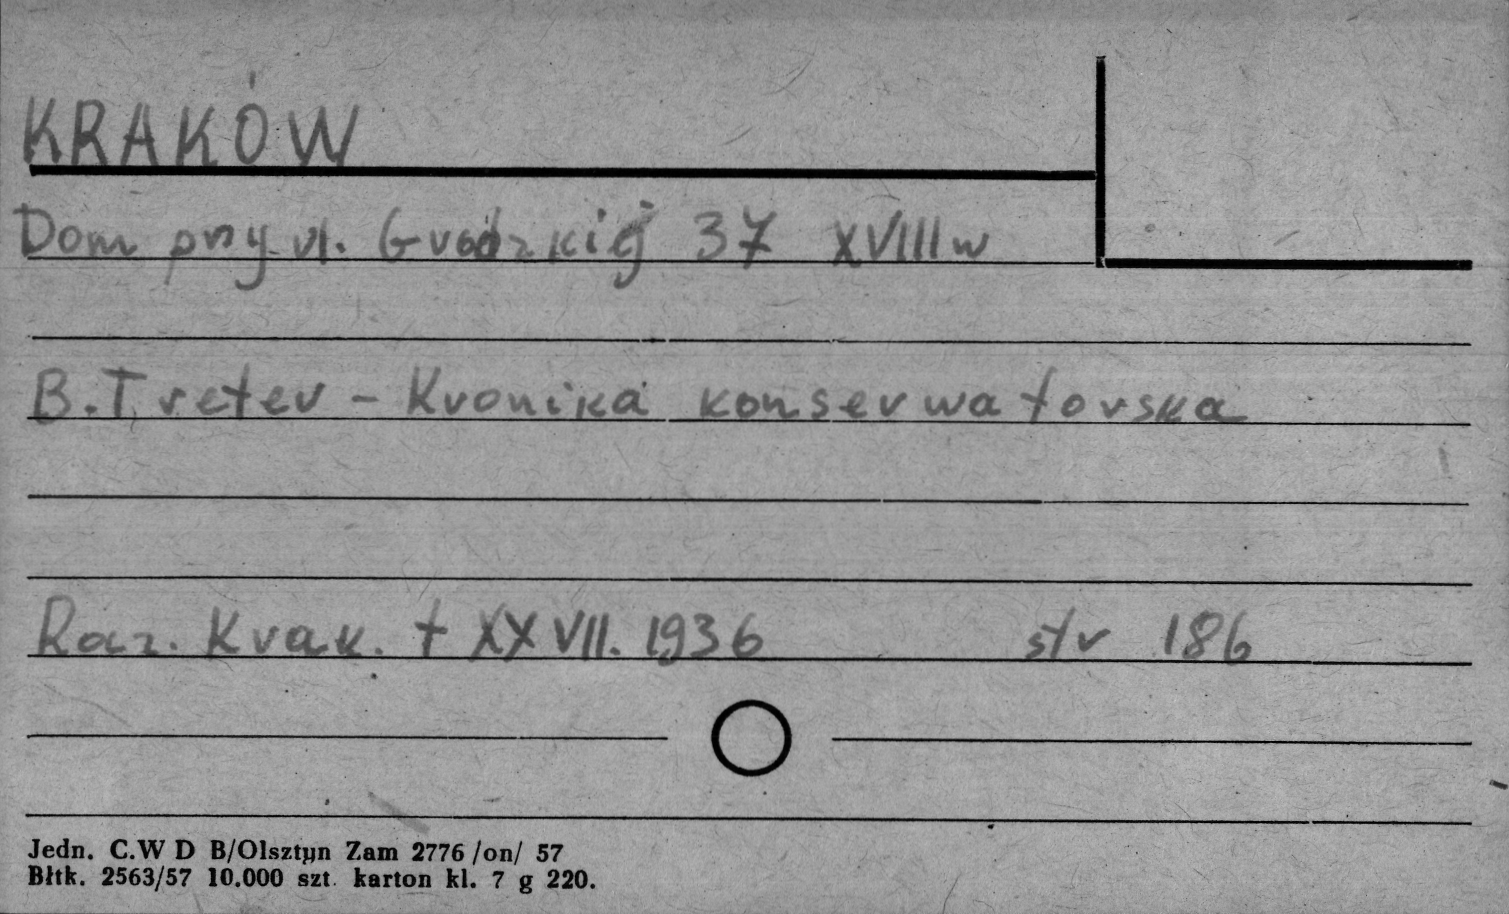 KRAKÓW
Dom przy ul. Grodzkiej 37 XVIII w
B. Treter - Kronika konserwatorska
Rocz. Krak. t XXVII. 1936 str 186
Jedn. C.W D B/Olsztyn Zam 2776 /on/ 57
Błtk. 2563/57 10.000 szt. karton kl. 7 g 220.